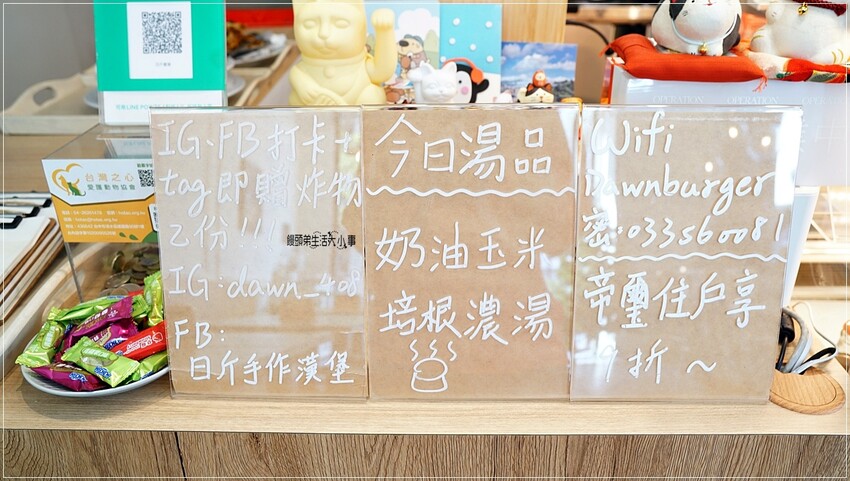 IG、FB打卡+
tag即贈炸物
乙份!!!
IG:dawn_408
FB:
日斤手作漢堡
饅頭弟生活大小事
今日湯品
奶油玉米
培根濃湯
Wifi
Dawnburger
密:033560081
帝璽住戶享
9折~
台灣之心
愛護動物協會
OPERATION
OPERATION